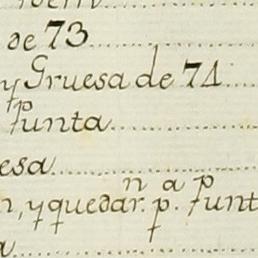 de 73
y Gruesa de 71
punta
esa
n, y quedar. p.n p.a p.p punt
a